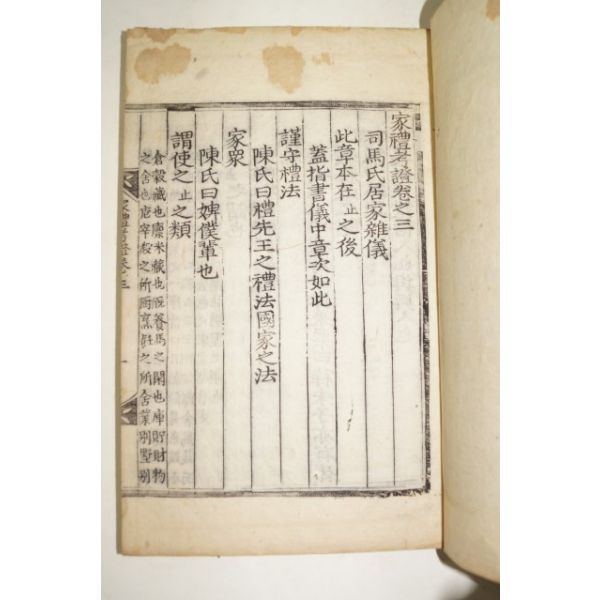 家禮考證卷之三
司馬氏居家雜儀
此章本在止之後
蓋指書儀中章次如此
謹守禮法
陳氏曰禮先王之禮法國家之法
家眾
陳氏曰婢僕輩也
謂使之止之類
倉穀藏也廩米藏也廐養馬之閑也庫貯財物
之舍也庖宰殺之所厨烹飪之所舍業別墅別
家禮考證卷之三